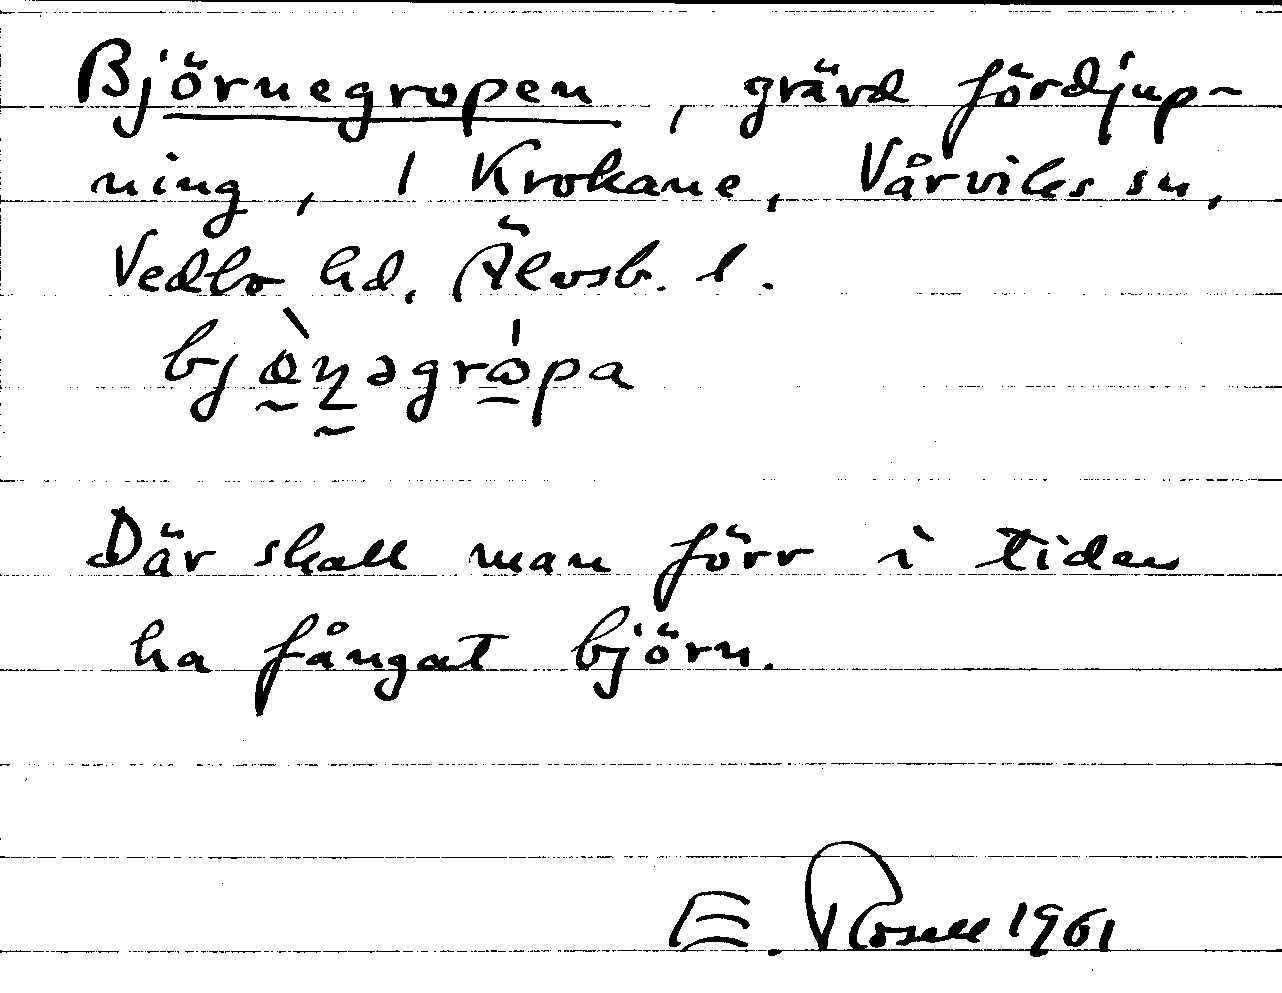 Björnegropen, grävd fördjup-
ning, 1 Krokane, Vårviks sn,
Vedbo hd, Älvsb. l.
Där skall man förr i tiden
ha fångat björn.
E. Rosell 1961